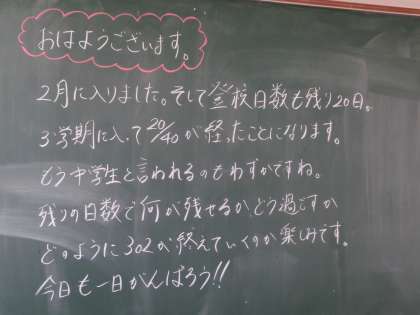 おはようございます。
2月に入りました。そして登校日数も残り20日。
3学期に入って20/40が経ったことになります。
もう中学生と言われるのもわずかですね。
残りの日数で何が残せるか、どう過ごすか
どのように302が終えていくのか楽しみです。
今日も一日がんばろう!!